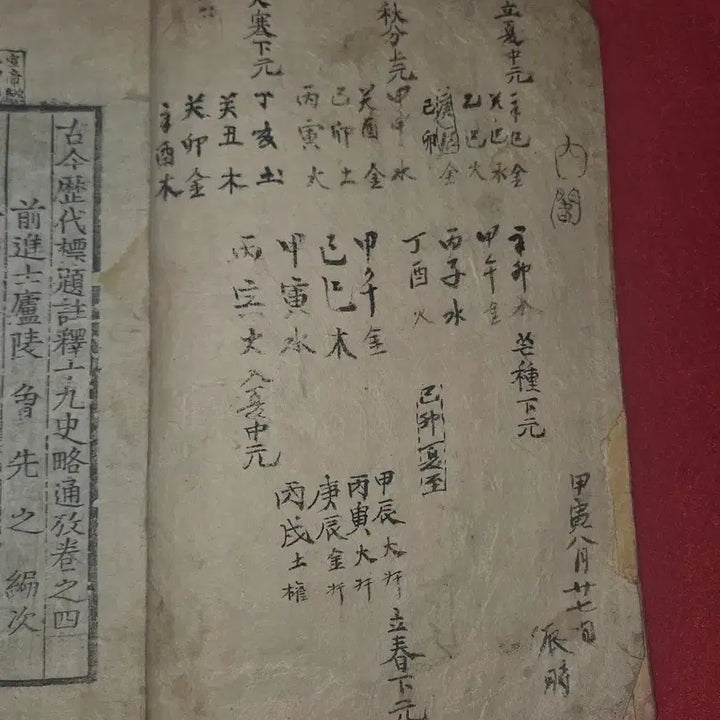 立夏中元
辛巳金
癸巳水
乙巳火
己卯
秋分上元
甲申水
癸酉金
己卯土
丙寅火
大寒下元
丁亥土
癸丑木
癸卯金
辛酉木
內閣
辛卯木
甲午金
丙子水
丁酉火
芒種下元
甲午金
己巳木
甲寅水
丙寅火
夏中元
己卯夏至
甲寅八月廿七日
辰時
甲辰火
丙寅火
庚辰金
丙戌土
立春下元
古今歷代標題註釋十九史略通攷卷之四
前進士廬陵曾先之編次